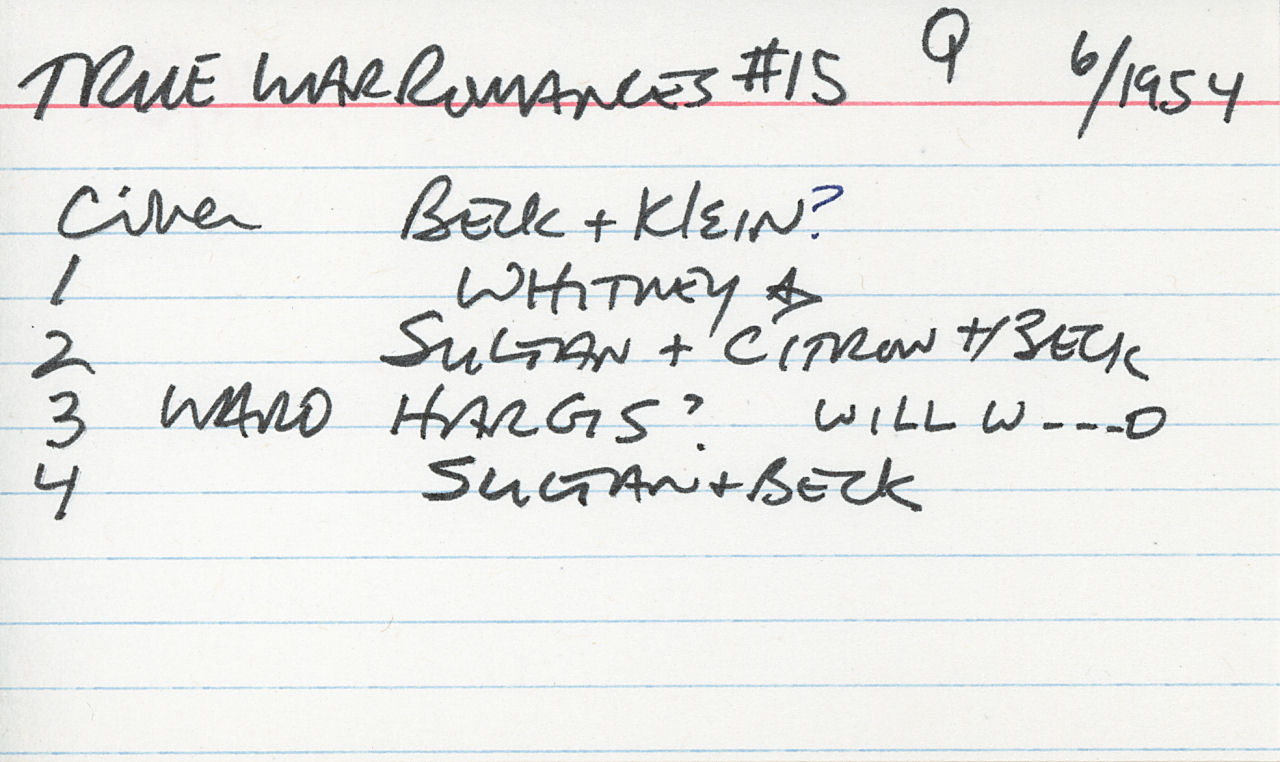 TRUE WAR ROMANCES #15 Q 6/1954
Cover BECK + KLEIN?
1 WHITNEY
2 SULTAN + CITRON + BECK
3 WARD HARGIS? WILL W---D
4 SULTAN + BECK